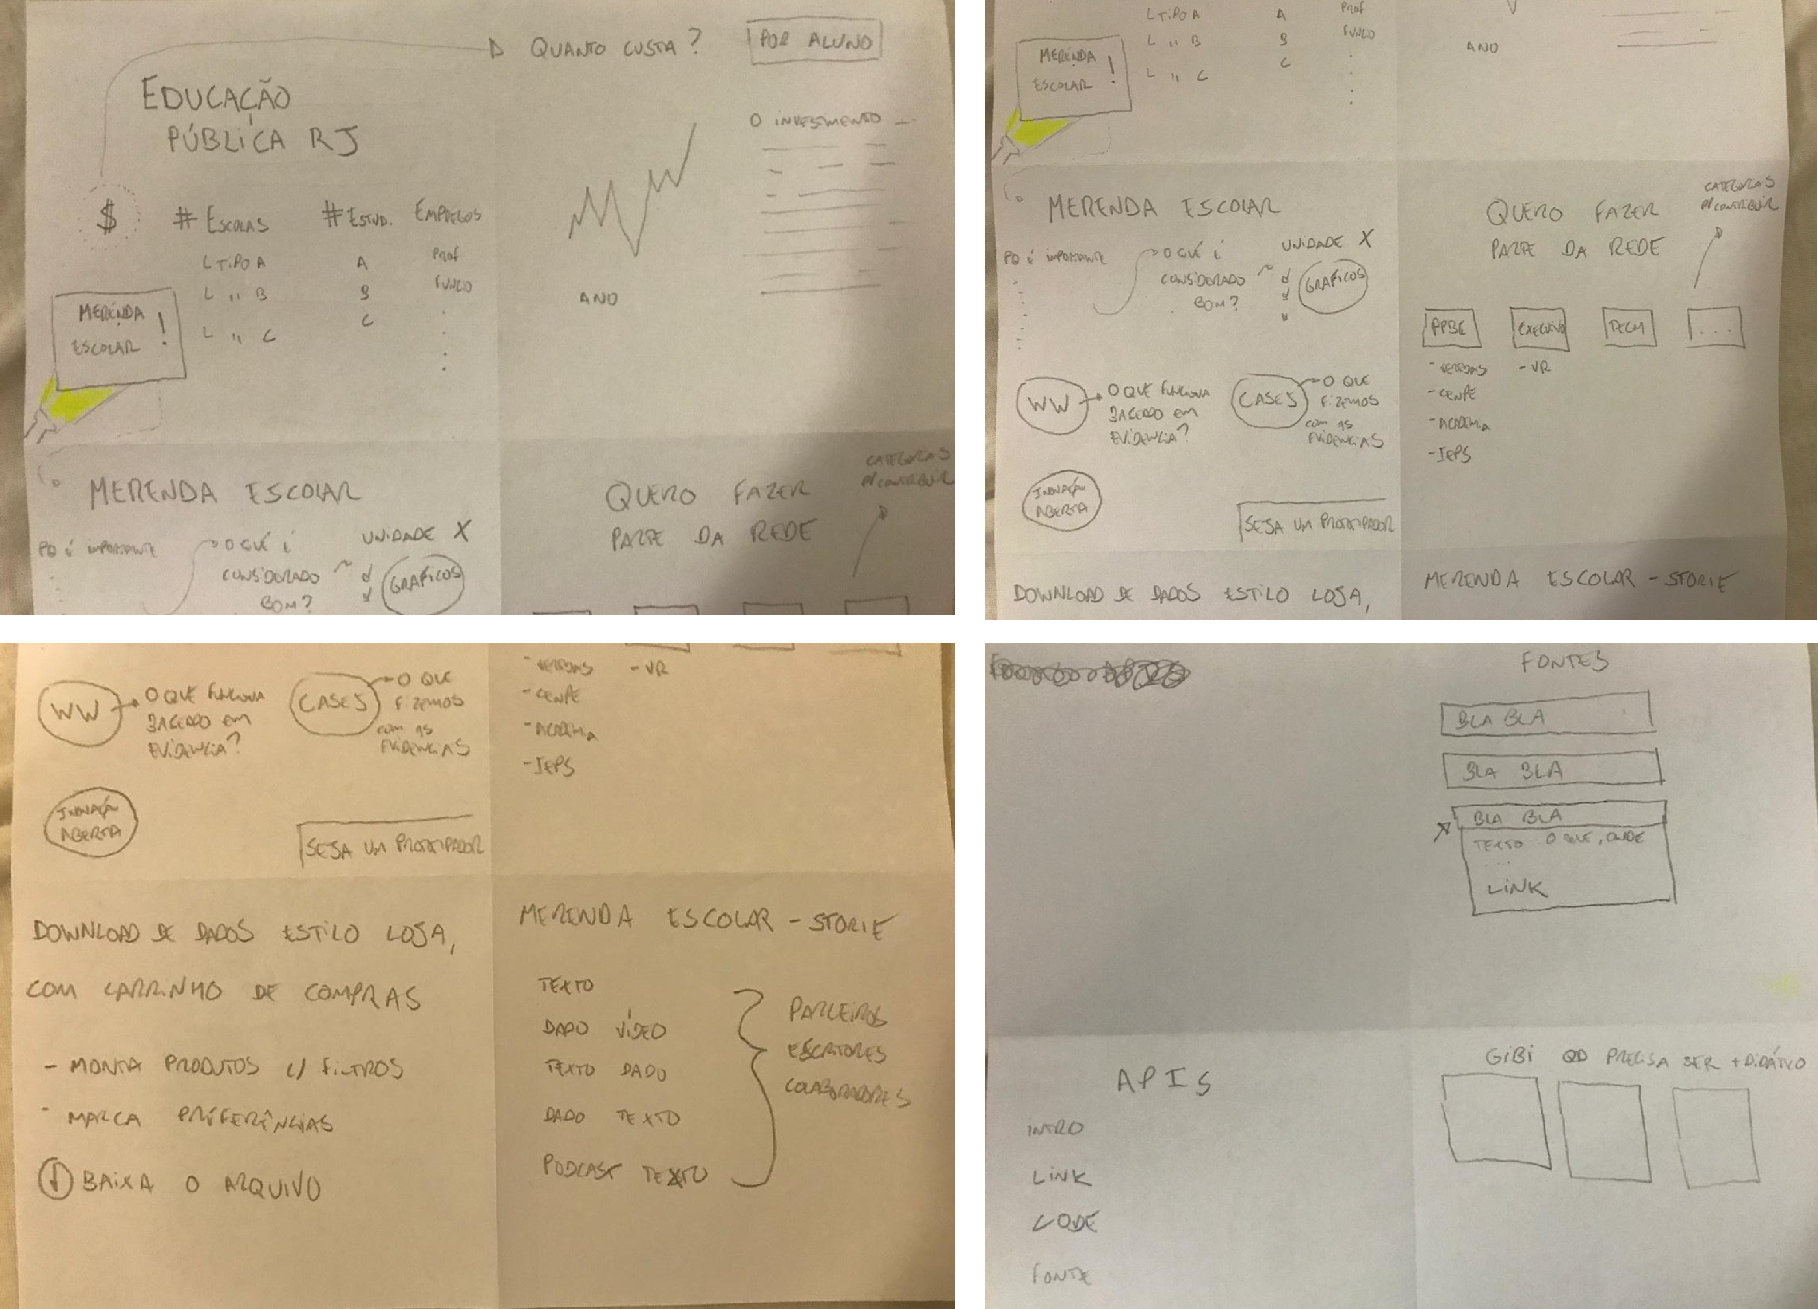 QUANTO CUSTA?
POR ALUNO
EDUCAÇÃO
PÚBLICA RJ
O INVESTIMENTO
$
# ESCOLAS
# ESTUD.
EMPREGOS
L TIPO A
A
PROF
L " B
B
FUNCIO
L " C
C
MERENDA
ESCOLAR !
ANO
MERENDA ESCOLAR
PQ É IMPORTANTE
O QUE É
CONSIDERADO
BOM?
UNIDADE X
GRÁFICOS
QUERO FAZER
PARTE DA REDE
CATEGORIAS
P/ CONTRIBUIR
L TIPO A
A
PROF
L " B
B
FUNCIO
L " C
C
MERENDA
ESCOLAR !
ANO
MERENDA ESCOLAR
PQ É IMPORTANTE
O QUE É
CONSIDERADO
BOM?
UNIDADE X
GRÁFICOS
WW
O QUE FUNCIONA
BASEADO EM
EVIDENCIA?
CASES
O QUE
FIZEMOS
COM AS
EVIDENCIAS
INOVAÇÃO
ABERTA
SEJA UM PROTOTIPADOR
QUERO FAZER
PARTE DA REDE
CATEGORIAS
P/ CONTRIBUIR
EXECUTIVO
TECH
...
- VR
- ACADEMIA
- JEPS
DOWNLOAD DE DADOS ESTILO LOJA,
MERENDA ESCOLAR - STORIE
WW
O QUE FUNCIONA
BASEADO EM
EVIDENCIA?
CASES
O QUE
FIZEMOS
COM AS
EVIDENCIAS
INOVAÇÃO
ABERTA
SEJA UM PROTOTIPADOR
- VR
- ACADEMIA
- JEPS
DOWNLOAD DE DADOS ESTILO LOJA,
COM CARRINHO DE COMPRAS
- MONTA PRODUTOS C/ FILTROS
- MARCA PREFERÊNCIAS
BAIXA O ARQUIVO
MERENDA ESCOLAR - STORIE
TEXTO
DADO VÍDEO
TEXTO DADO
DADO TEXTO
PODCAST TEXTO
PARCEIROS
ESCRITORES
COLABORADORES
FONTES
BLA BLA
BLA BLA
BLA BLA
TEXTO O QUE, ONDE
...
LINK
APIS
INTRO
LINK
CODE
FONTE
GIBI QD PRECISA SER + DIDÁTICO